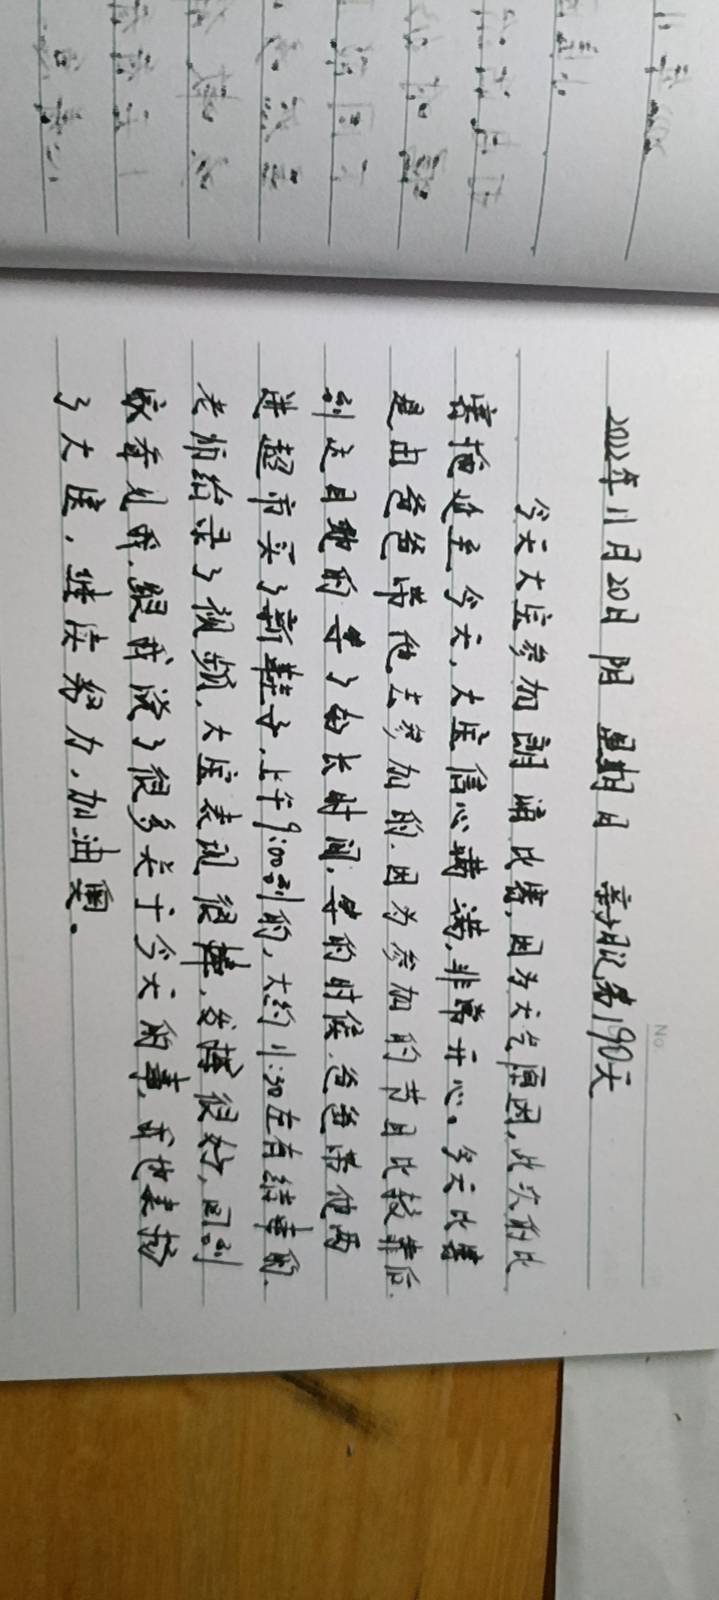 No
2022年11月20日 阴 星期日 亲子日记第190天
今天大宝参加朗诵比赛,因为天气原因,此次的比
赛拖延至今天,大宝信心满满,非常开心。今天比赛
是由爸爸带他去参加的,因为参加的节目比较靠后,
到达目地的等了好长时间,等的时候,爸爸带他两
进超市买了新鞋子,上午9:00到的,大约11:30左右结束的,
老师给录了视频,大宝表现很棒,发挥很好,回到
家看见我,跟我说了很多关于今天的事,我也表扬
了大宝,继续努力,加油奥。